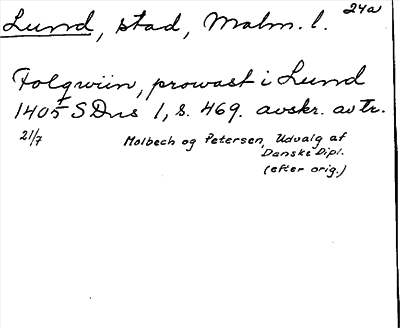 24a
Lund, stad, Malm. l.
Folqwiin, prowast i Lund
1405 SDns 1, s. 469. avskr. av tr.
21/7 Molbech og Petersen, Udvalg af
Danske Dipl.
(efter orig.)